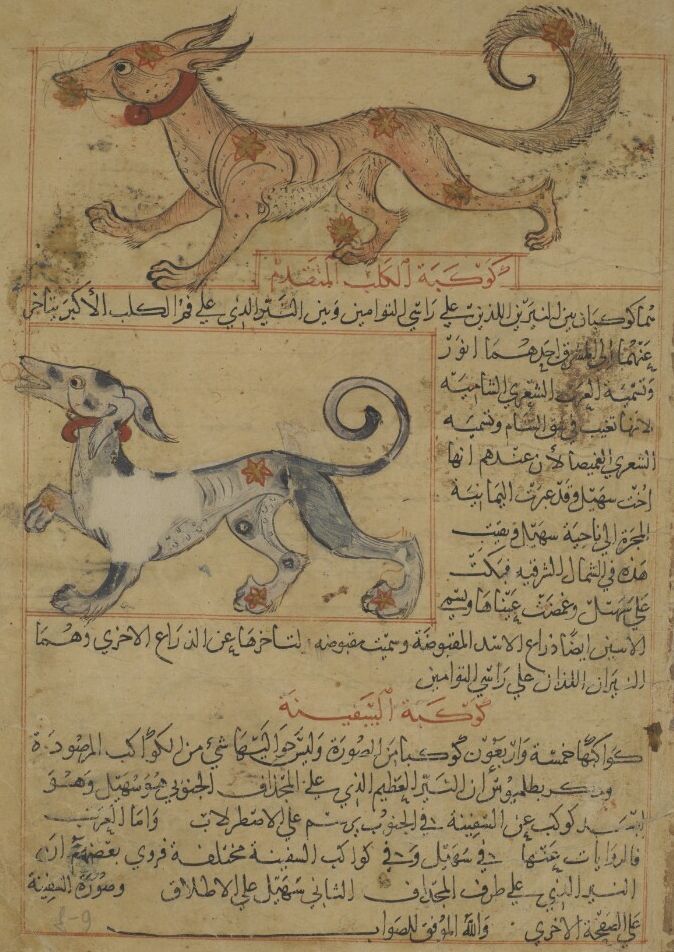 كوكبة الكلب المتقدم
هما كوكبان بين النيرين اللذين على راسي التوامين وبين النير الذي على فم الكلب الأكبر يتاخر
عنهما الى المشرق احدهما انور
وتسميه العرب الشعري الشاميه
لانها تغيب في شق الشام وتسميه
الشعري الغميصا لأن عندهم انها
اخت سهيل وقد عبرت اليمانية
المجرة الى ناحية سهيل وبقيت
هذه في الشمال للشرقيه فبكت
على سهيل وغمضت عيناها وتسمى
الاثنين ايضا ذراع الاسد المقبوضة وسميت مقبوضه لتاخرها عن الذراع الاخري وهما
النيران اللذان على راسي التوامين
كوكبة السفينة
كواكبها خمسة واربعون كوكبا من الصورة وليس حواليها شي من الكواكب المرصودة
وذكر بطلميوس أن النير العظيم الذي على المجذاف الجنوبي هو سهيل وهو
ابعد كوكب عن السفينة في الجنوب يرسم على الاصطرلاب واما العرب
فالروايات عنها في سهيل وفي كواكب السفينة مختلفة فروي بعضهم ان
النير الذي على طرف المجذاف الثاني سهيل على الاطلاق وصورة السفينة
على الصفحة الاخري والله الموفق للصواب